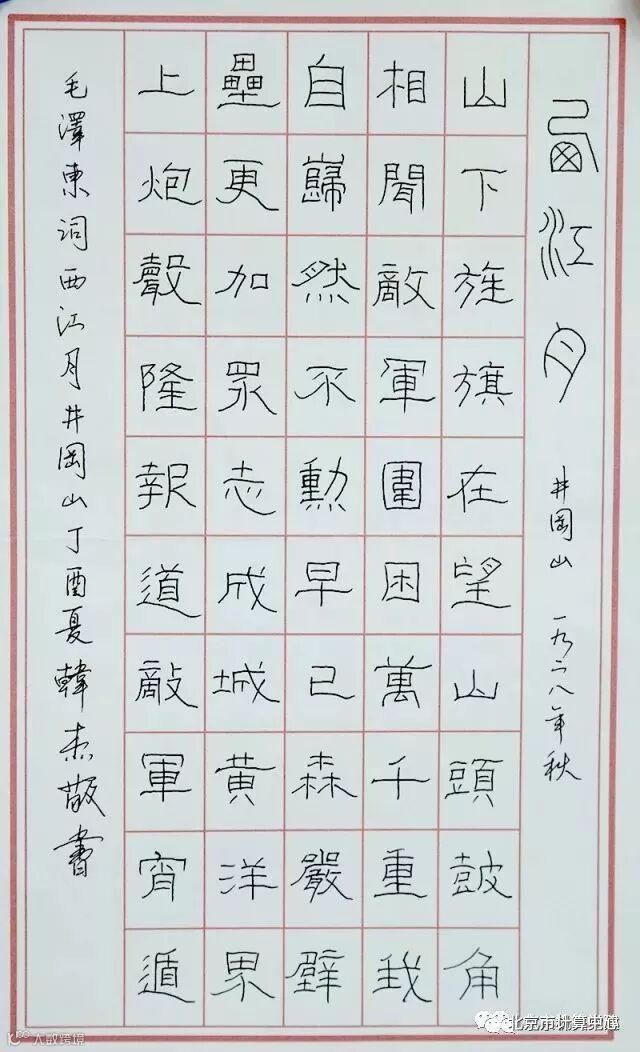 西江月 井岡山 一九二八年秋
山下旌旗在望山頭鼓角
相聞敵軍圍困萬千重我
自巋然不勳早已森嚴壁
壘更加眾志成城黃洋界
上炮聲隆報道敵軍宵遁
毛澤東詞西江月井岡山丁酉夏韓杰敬書
大数跨境